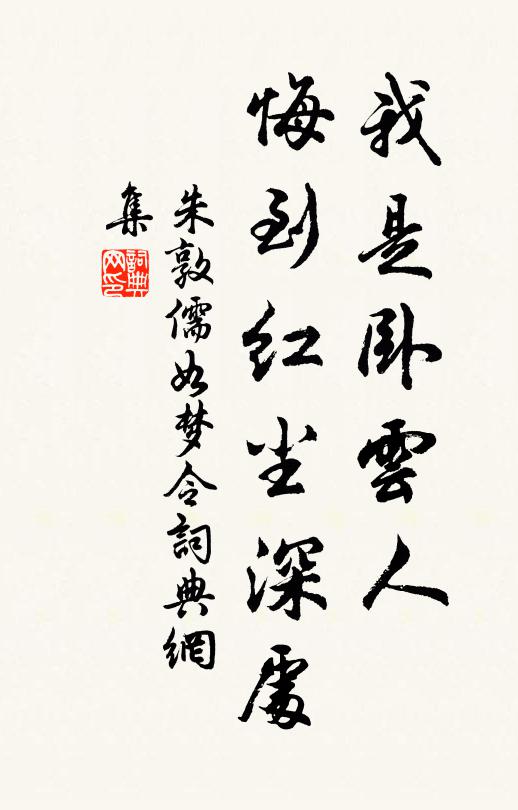 我是卧雲人
悔到红尘深處
朱敦儒如梦令詞典網
集
詞典
网印